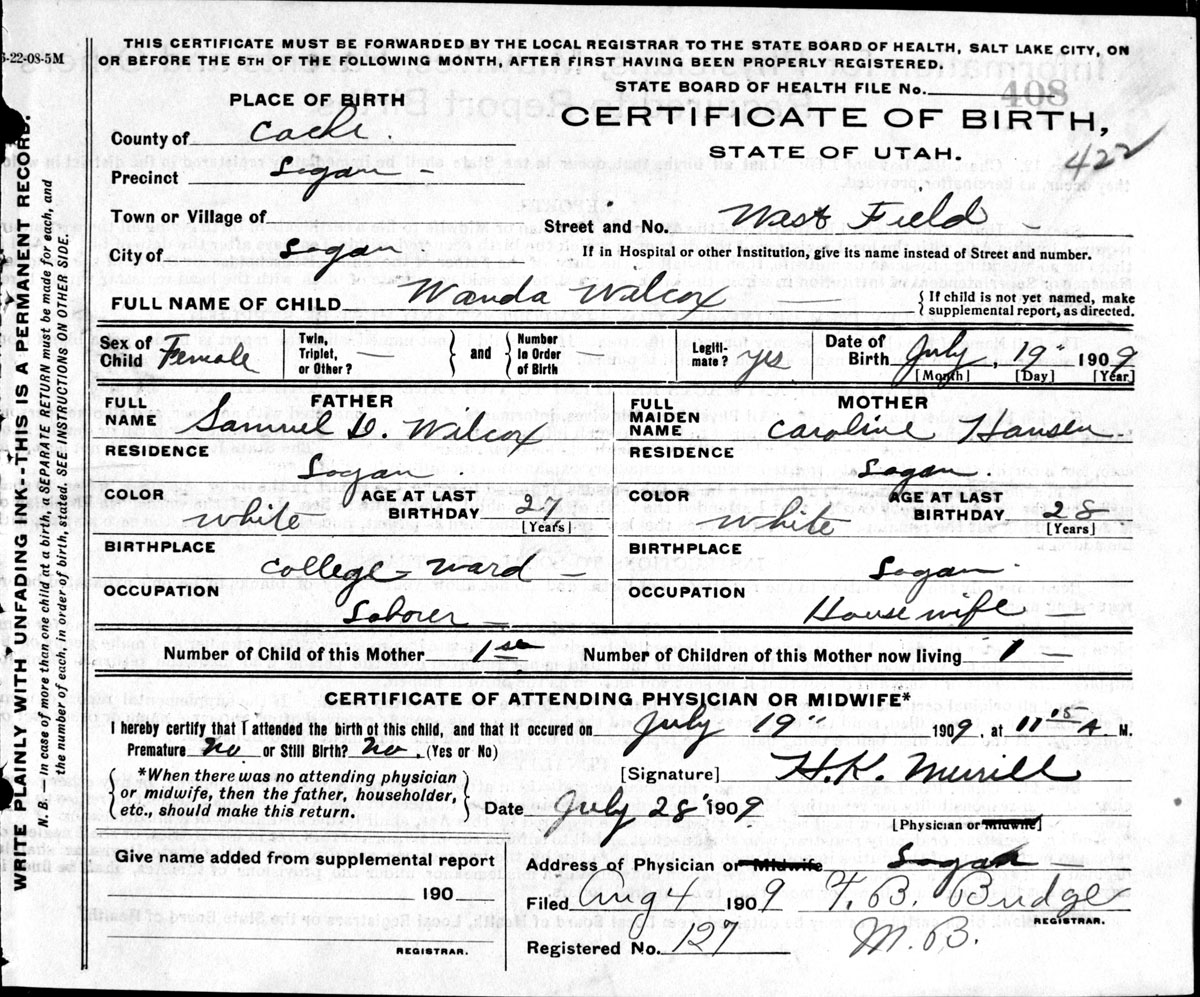 3-22-08-5M
THIS CERTIFICATE MUST BE FORWARDED BY THE LOCAL REGISTRAR TO THE STATE BOARD OF HEALTH, SALT LAKE CITY, ON
OR BEFORE THE 5TH OF THE FOLLOWING MONTH, AFTER FIRST HAVING BEEN PROPERLY REGISTERED.
STATE BOARD OF HEALTH FILE No. 408
PLACE OF BIRTH
CERTIFICATE OF BIRTH,
STATE OF UTAH.
422
County of Cache.
Precinct Logan -
Town or Village of
Street and No. West Field
City of Logan -
If in Hospital or other Institution, give its name instead of Street and number.
FULL NAME OF CHILD Wanda Wilcox
{ If child is not yet named, make
supplemental report, as directed.
Sex of Child Female
Twin, Triplet, or Other? —
} and { Number in Order of Birth
Legitimate? yes
Date of Birth July, 19, 1909
[Month] [Day] [Year]
FATHER
FULL NAME Samuel D. Wilcox
MOTHER
FULL MAIDEN NAME Caroline Hansen
RESIDENCE Logan
RESIDENCE Logan
COLOR White AGE AT LAST BIRTHDAY 27 [Years]
COLOR White AGE AT LAST BIRTHDAY 28 [Years]
BIRTHPLACE College Ward -
BIRTHPLACE Logan
OCCUPATION Laborer -
OCCUPATION Housewife -
Number of Child of this Mother 1st
Number of Children of this Mother now living 1
CERTIFICATE OF ATTENDING PHYSICIAN OR MIDWIFE*
I hereby certify that I attended the birth of this child, and that it occured on July 19" 1909, at 11 05 A M.
Premature No or Still Birth? No. (Yes or No)
{ *When there was no attending physician
or midwife, then the father, householder,
etc., should make this return. }
[Signature] H.K. Merrill
Date July 28 1909
[Physician or Midwife]
Give name added from supplemental report
190
REGISTRAR.
Address of Physician or Midwife Logan
Filed Aug 4 1909 F. B. Budge
REGISTRAR.
Registered No. 127 M.B.
WRITE PLAINLY WITH UNFADING INK.--THIS IS A PERMANENT RECORD.
N. B. — In case of more then one child at a birth, a SEPARATE RETURN must be made for each, and
the number of each, in order of birth, stated. SEE INSTRUCTIONS ON OTHER SIDE.